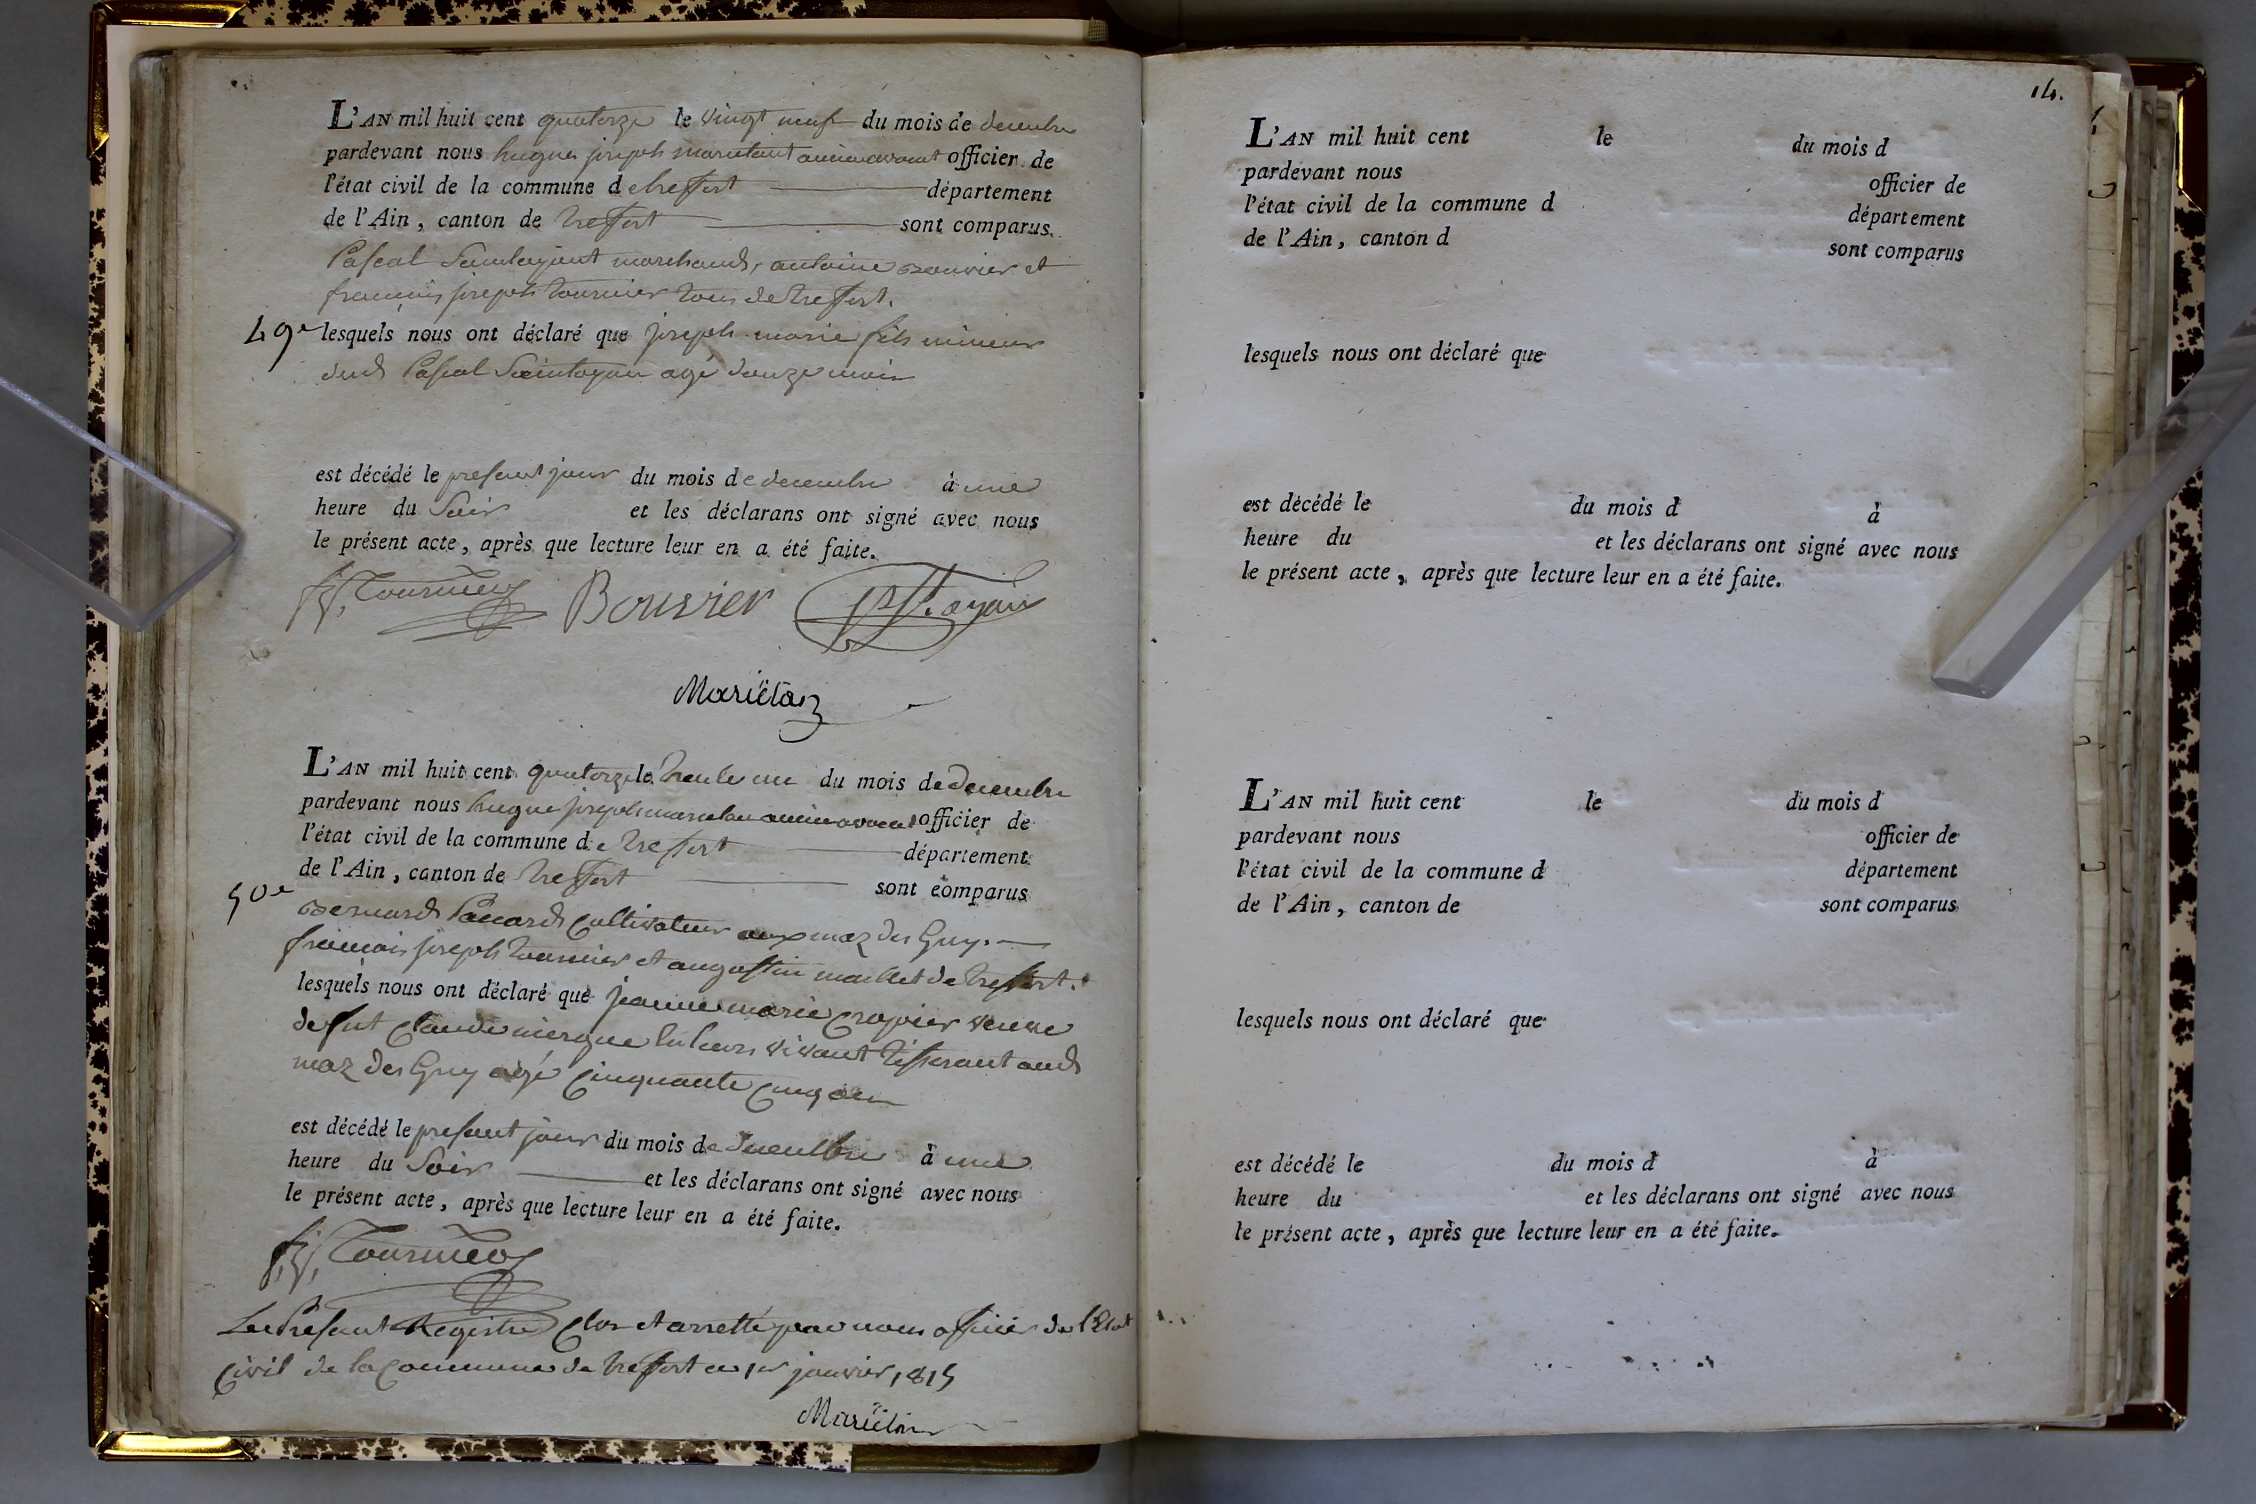 L'AN mil huit cent quatorze le vingt neuf du mois de decembre
pardevant nous hugue joseph marietant ancien avocat officier de
l'état civil de la commune de treffort département
de l'Ain, canton de treffort sont comparus
Pascal Saintoyant marchand, antoine Bouvier et
francois joseph tournier tous de treffort.
49e lesquels nous ont déclaré que joseph marie fils mineur
dud Pascal Saintoyan agé douze mois
est décédé le present jour du mois de decembre à une
heure du Soir et les déclarans ont signé avec nous
le présent acte, après que lecture leur en a été faite.
fj, Tournier Bouvier St. oyan
Mariëtan
L'AN mil huit cent quatorze le trente un du mois de decembre
pardevant nous hugue joseph marietan ancien avocat officier de
l'état civil de la commune de treffort département
de l'Ain, canton de treffort sont comparus
50e
Bernard Panard Cultivateur aux maz des Guy.
francois joseph tournier et augustin maillet de treffort.
lesquels nous ont déclaré que jeanne marie Cropier veuve
defunt Claude niergue vivant tisserant aud
maz des Guy agé Cinquante Cinq ans
est décédé le present jour du mois de decembre à une
heure du Soir et les déclarans ont signé avec nous
le présent acte, après que lecture leur en a été faite.
fj, Tournier
Le Présent Registre Clos et arretté par nous officier de l'Etat
Civil de la Commune de treffort ce 1er janvier 1815
Mariëtan
14.
L'AN mil huit cent le du mois d
pardevant nous officier de
l'état civil de la commune d département
de l'Ain, canton d sont comparus
lesquels nous ont déclaré que
est décédé le du mois d à
heure du et les déclarans ont signé avec nous
le présent acte, après que lecture leur en a été faite.
L'AN mil huit cent le du mois d
pardevant nous officier de
l'état civil de la commune d département
de l'Ain, canton de sont comparus
lesquels nous ont déclaré que
est décédé le du mois d à
heure du et les déclarans ont signé avec nous
le présent acte, après que lecture leur en a été faite.